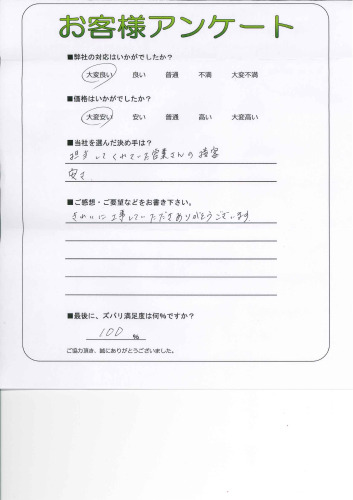 お客様アンケート
■弊社の対応はいかがでしたか？
大変良い 良い 普通 不満 大変不満
■価格はいかがでしたか？
大変安い 安い 普通 高い 大変高い
■当社を選んだ決め手は？
担当してくれている営業さんの接客
安さ
■ご感想・ご要望などをお書き下さい。
きれいに工事していただきありがとうございます
■最後に、ズバリ満足度は何%ですか？
100 %
ご協力頂き、誠にありがとうございました。